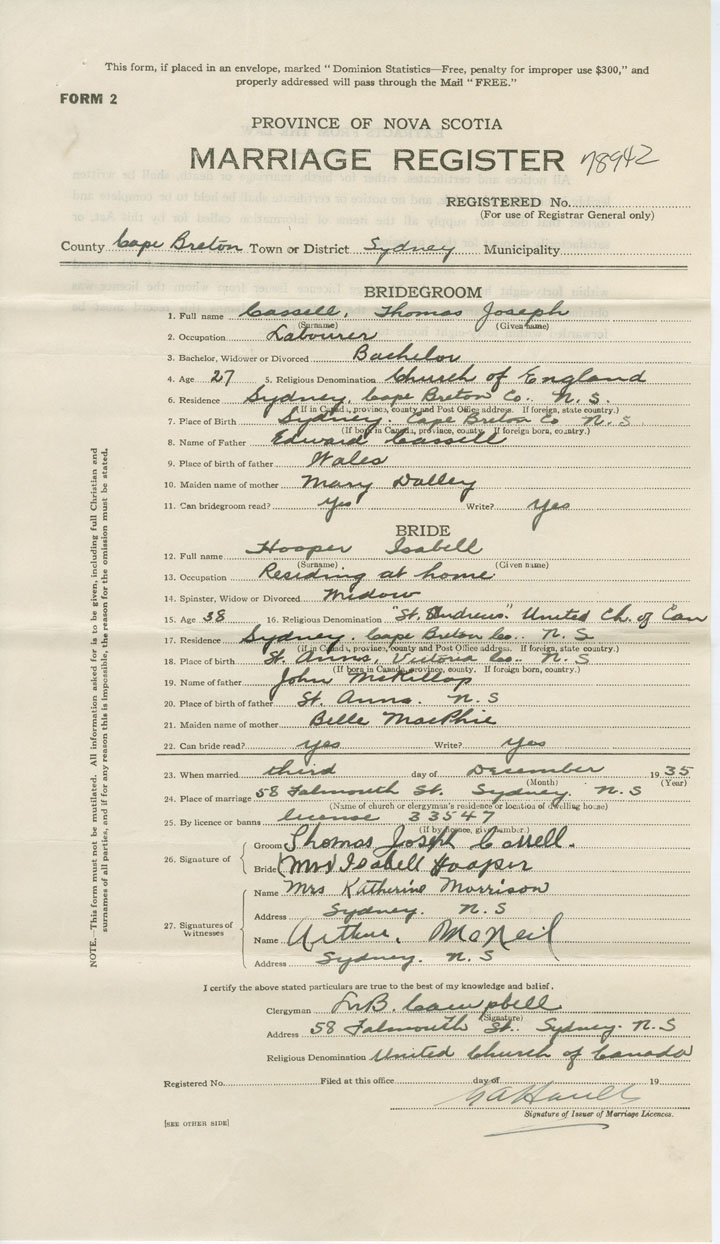 This form, if placed in an envelope, marked "Dominion Statistics—Free, penalty for improper use $300," and
properly addressed will pass through the Mail "FREE."
FORM 2
PROVINCE OF NOVA SCOTIA
MARRIAGE REGISTER 78942
REGISTERED No.
(For use of Registrar General only)
County Cape Breton Town or District Sydney Municipality
BRIDEGROOM
1. Full name Cassell, Thomas Joseph
(Surname) (Given name)
2. Occupation Labourer
3. Bachelor, Widower or Divorced Bachelor
4. Age 27 5. Religious Denomination Church of England
6. Residence Sydney, Cape Breton Co. N. S.
(If in Canada, province, county and Post Office address. If foreign, state country.)
7. Place of Birth Sydney. Cape Breton Co N. S
(If born in Canada, province, county. If foreign born, country.)
8. Name of Father Edward Cassell
9. Place of birth of father Wales
10. Maiden name of mother Mary Dalley
11. Can bridegroom read? Yes Write? Yes
BRIDE
12. Full name Hooper Isabell
(Surname) (Given name)
13. Occupation Residing at home
14. Spinster, Widow or Divorced Widow
15. Age 38 16. Religious Denomination "St. Andrews". United Ch. of Can
17. Residence Sydney. Cape Breton Co. N. S
(if in Canada, province, county and Post Office address. If foreign, state country.)
18. Place of birth St. Anns, Victoria Co. N. S
(If born in Canada, province, county. If foreign born, country.)
19. Name of father John McKillop
20. Place of birth of father St. Anns. N. S
21. Maiden name of mother Belle MacPhie
22. Can bride read? yes Write? Yes
23. When married third day of December 1935
(Month) (Year)
24. Place of marriage 58 Falmouth St. Sydney. N. S
(Name of church or clergyman's residence or location of dwelling house)
25. By licence or banns license 33547
(If by licence, give number.)
26. Signature of
Groom Thomas Joseph Cassell.
Bride Mrs Isabell Hooper
27. Signatures of Witnesses
Name Mrs Katherine Morrison
Address Sydney. N. S
Name Arthur. McNeil
Address Sydney. N. S
I certify the above stated particulars are true to the best of my knowledge and belief.
Clergyman Campbell
(Signature)
Address 58 Falmouth St. Sydney. N. S
Religious Denomination United Church of Canada
Registered No. Filed at this office day of 19
Signature of Issuer of Marriage Licences.
[SEE OTHER SIDE]
NOTE.—This form must not be mutilated. All information asked for is to be given, including full Christian and
surnames of all parties, and if for any reason this is impossible, the reason for the omission must be stated.